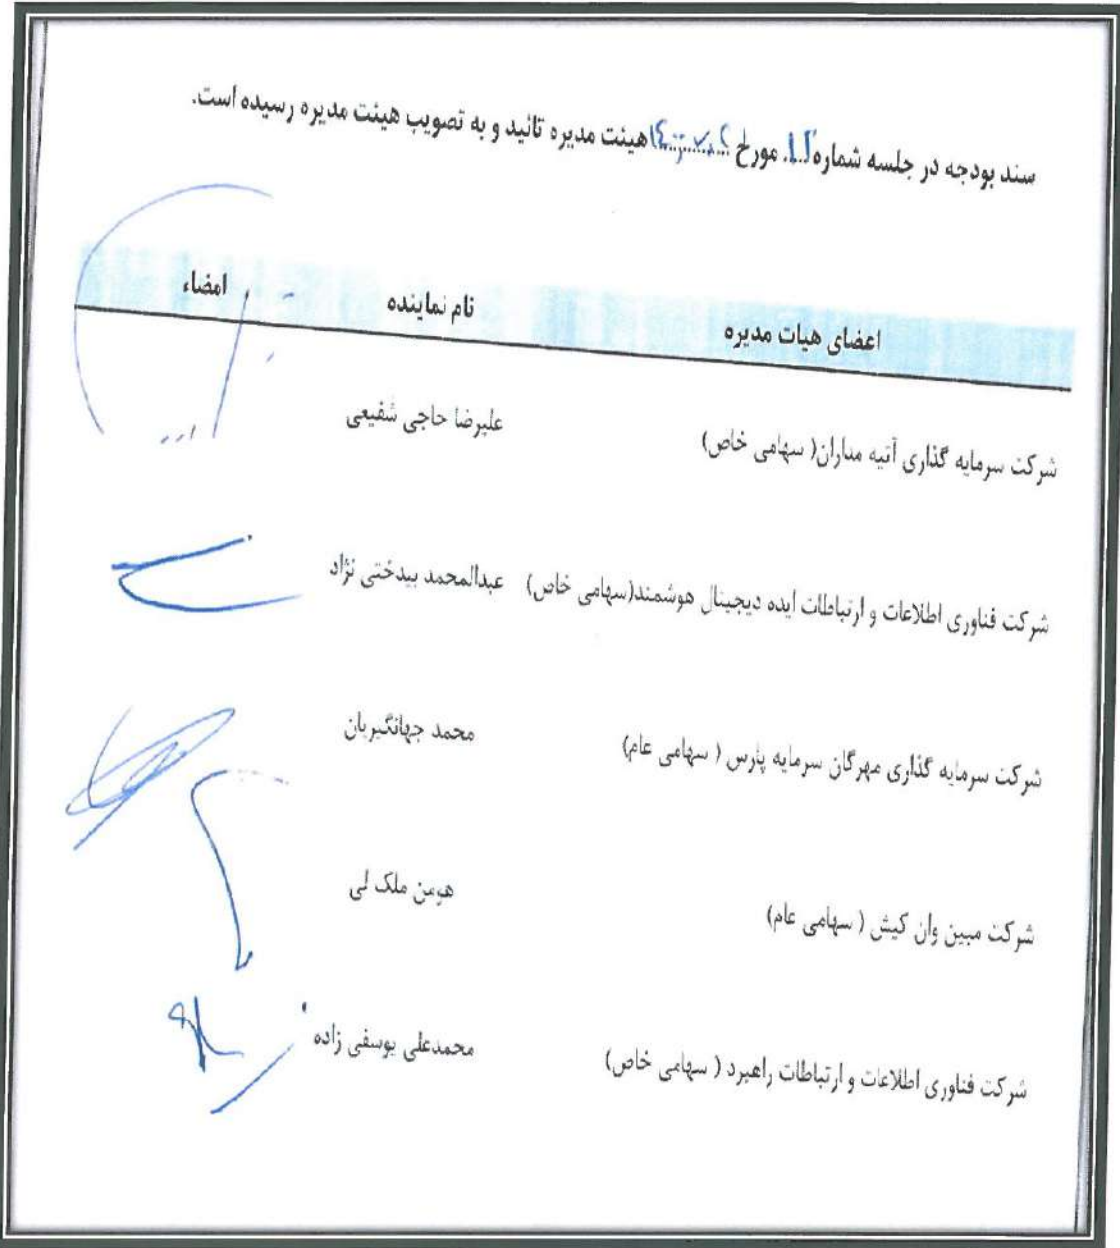 سند بودجه در جلسه شماره مورخ هیئت مدیره تائید و به تصویب هیئت مدیره رسیده است.
اعضای هیات مدیره نام نماینده امضاء
شرکت سرمایه گذاری آتیه مداران( سهامی خاص) علیرضا حاجی شفیعی
شرکت فناوری اطلاعات و ارتباطات ایده دیجیتال هوشمند(سهامی خاص) عبدالمحمد بیدختی نژاد
شرکت سرمایه گذاری مهرگان سرمایه پارس ( سهامی عام) محمد جهانگیریان
شرکت مبین وان کیش ( سهامی عام) هومن ملک لی
شرکت فناوری اطلاعات و ارتباطات راهبرد ( سهامی خاص) محمدعلی یوسفی زاده